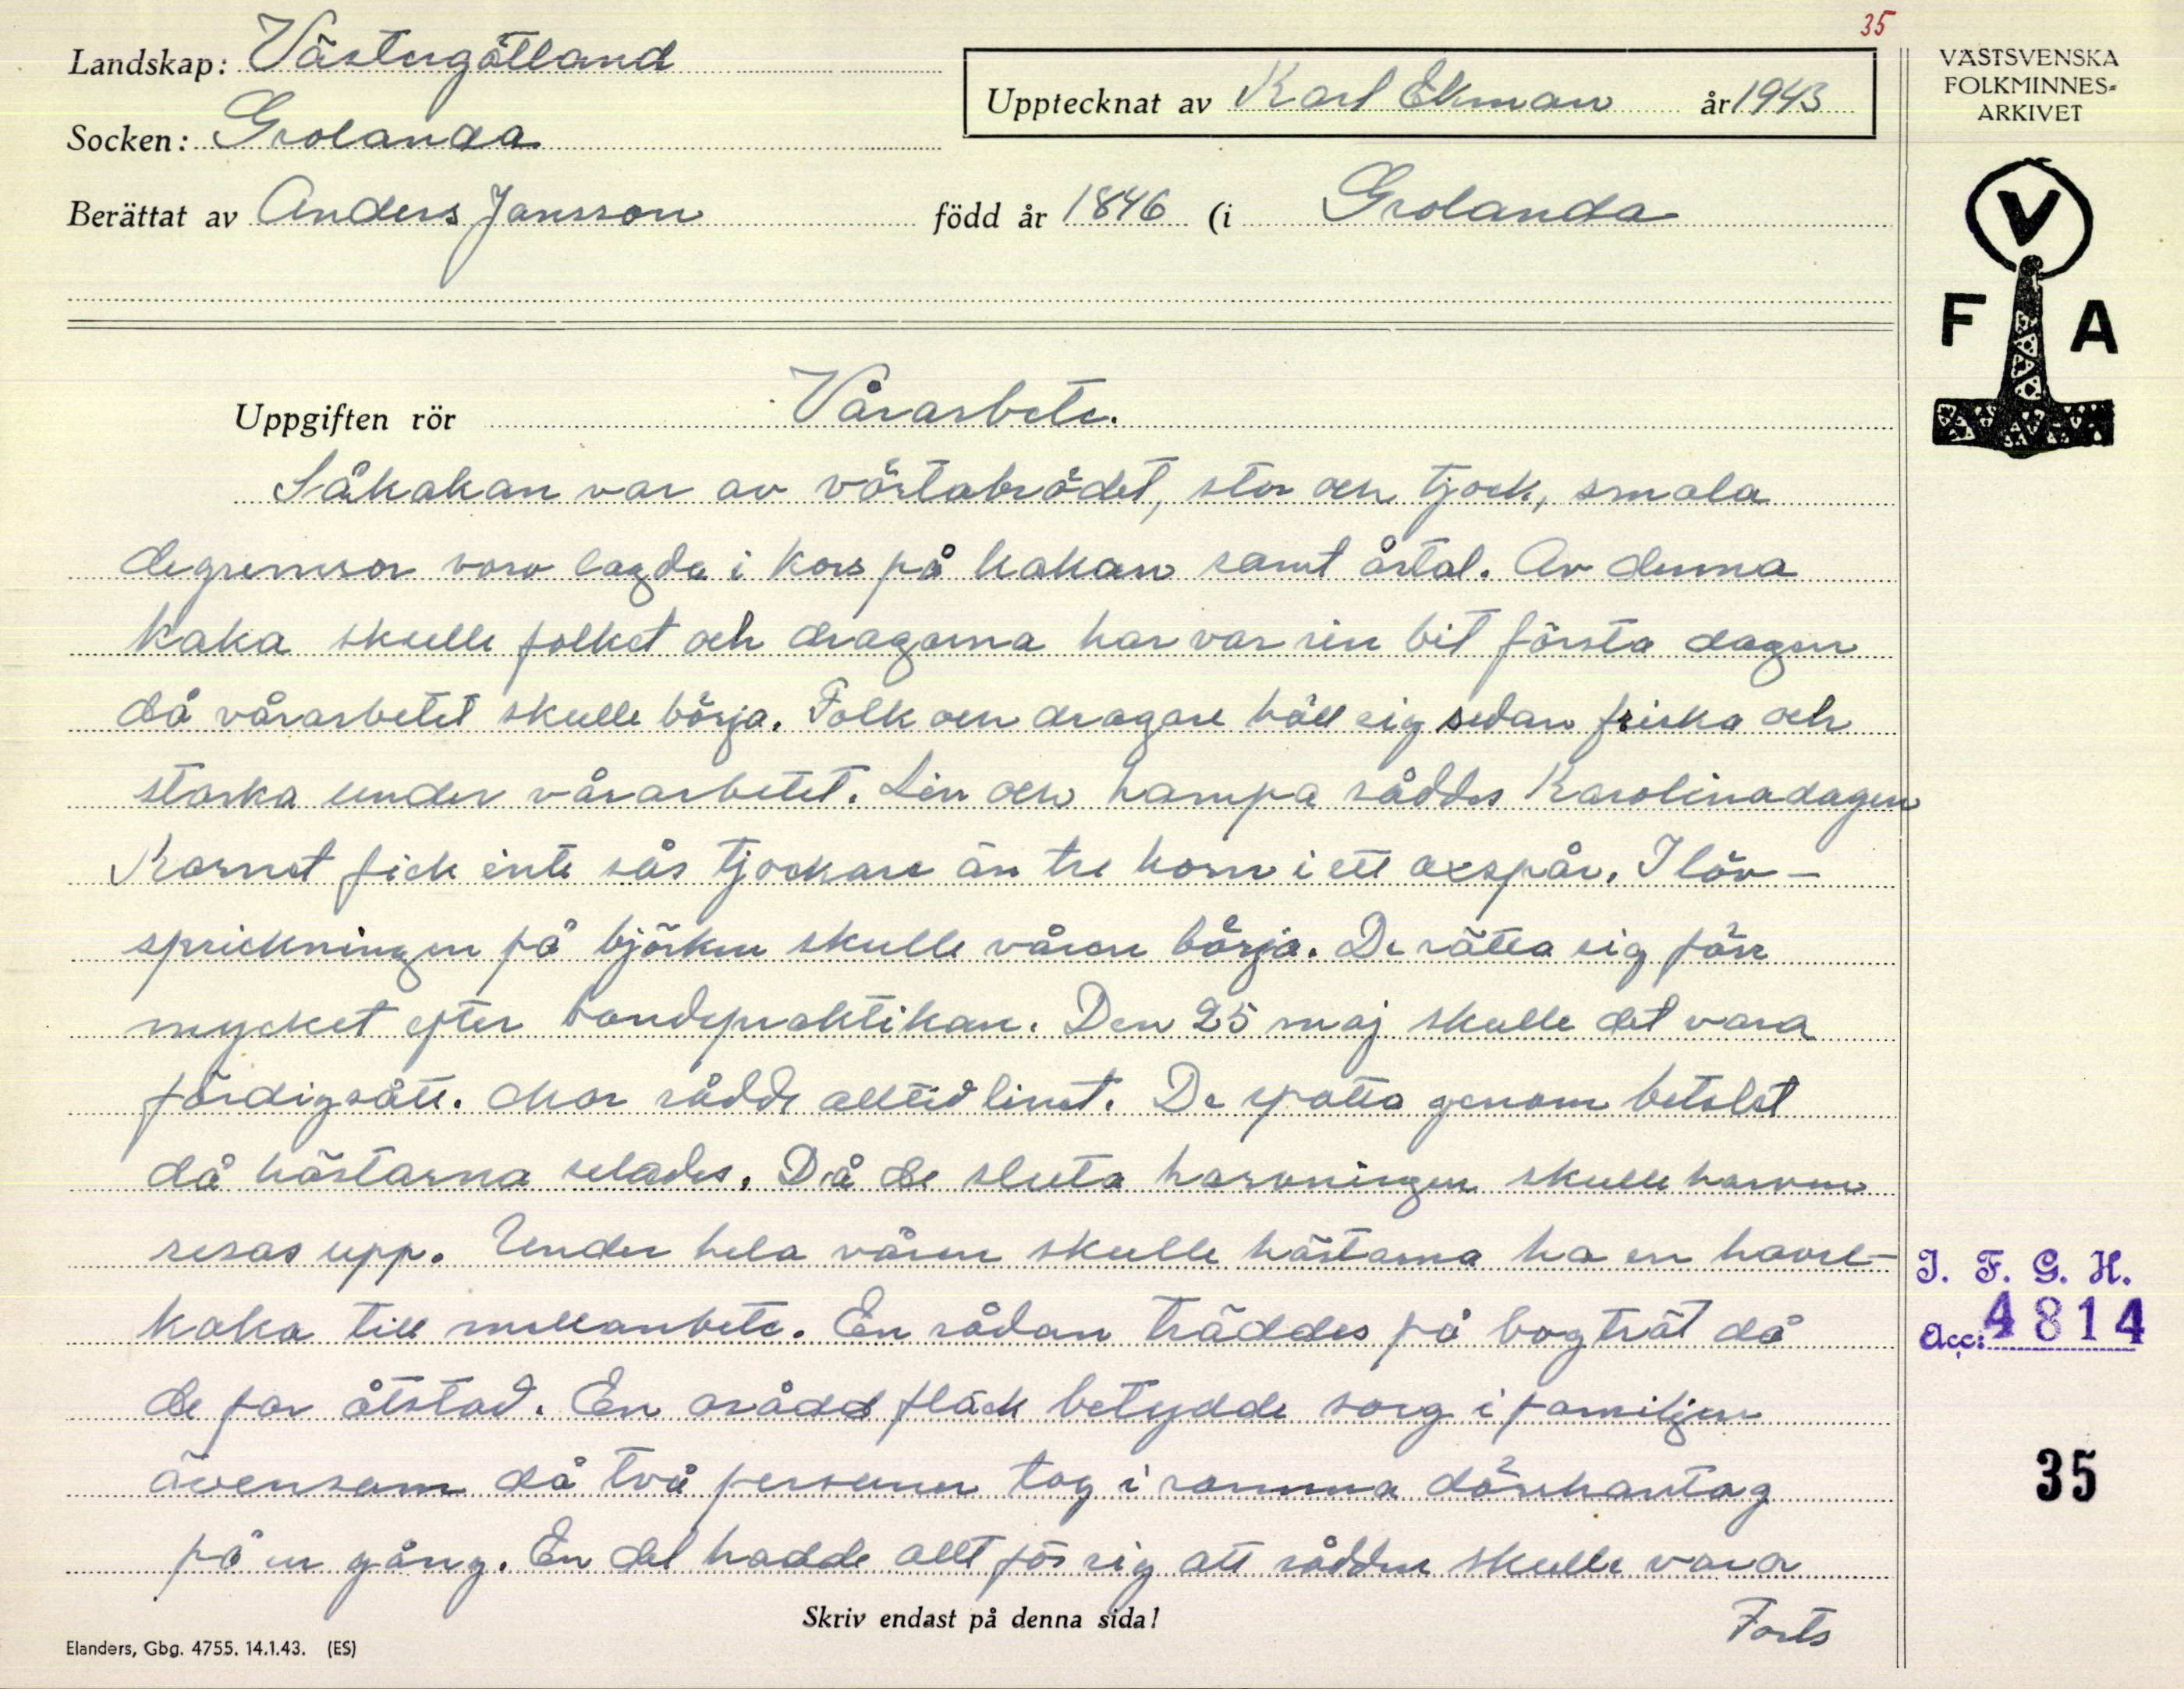 35
Landskap: Västergötland
Upptecknat av Karl Ekman år 1943
Socken: Grolanda
Berättat av Anders Jansson född år 1846 (i Grolanda
VÄSTSVENSKA
FOLKMINNES-
ARKIVET
V
F A
Uppgiften rör Vårarbete.
Såkakan var av vörtabrödet, stor och tjock, smala
degremsor voro lagda i kors på kakan samt årtal. Av denna
kaka skulle folket och dragarna har var sin bit första dagen
då vårarbetet skulle börja. Folk och dragare höll sig sedan friska och
starka under vårarbetet. Lin och hampa såddes Karolinadagen
Kornet fick inte sås tjockare än tre korn i ett oxspår. I löv-
sprickningen på björken skulle våren börja. De rätta sig förr
mycket efter bondepraktikan. Den 25 maj skulle det vara
färdigsått. Mor sådde alltid linet. De spotta genom betslet
då hästarna selades. Då de sluta harvningen skulle harven
resas upp. Under hela våren skulle hästarna ha en havre-
kaka till mellanbete. En sådan träddes på bogträt då
de for åstad. En osådd fläck betydde sorg i familjen
ävensom då två personer tog i samma dörrhantag
på en gång. En del hadde allt för sig att sådden skulle vara
Forts
Skriv endast på denna sida!
Elanders, Gbg. 4755. 14.1.43. (ES)
I. F. G. H.
Acc: 4814
35